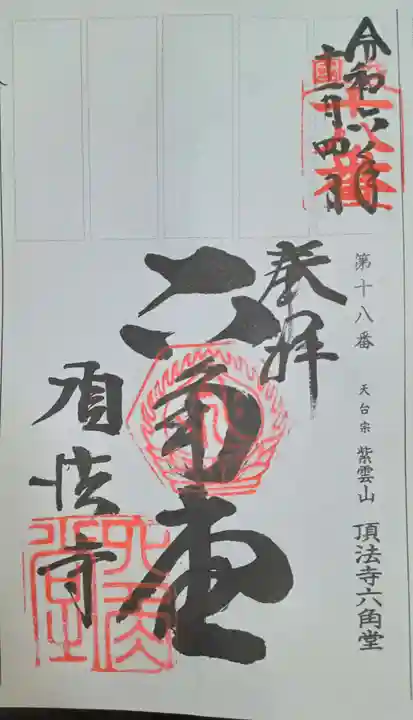 令和六年
十二月四日
第十八番 天台宗 紫雲山 頂法寺六角堂
奉拝
六角堂
頂法寺